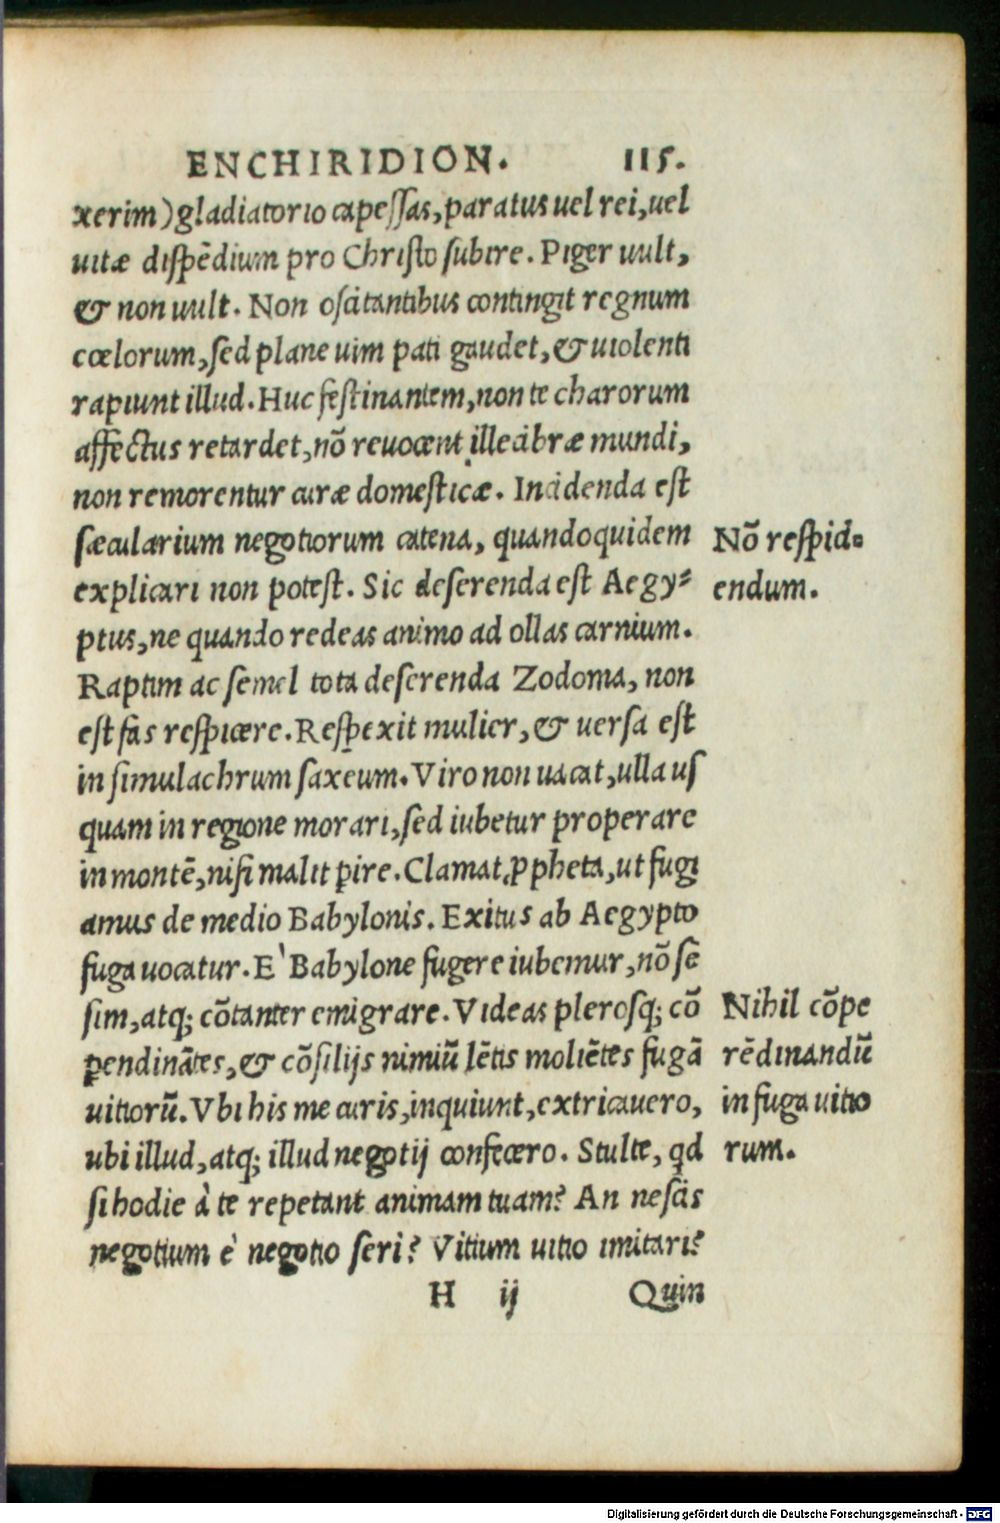 ENCHIRIDION. 115.
xerim) gladiatorio capeſſas, paratus uel rei, uel
uitæ diſpẽdium pro Chriſto ſubire. Piger uult,
& non uult. Non oſcitantibus contingit regnum
cœlorum, ſed plane uim pati gaudet, & uiolenti
rapiunt illud. Huc feſtinantem, non te charorum
affectus retardet, nõ reuocent illecebræ mundi,
non remorentur curæ domeſticæ. Incidenda eſt
ſæcularium negotiorum catena, quandoquidem
explicari non poteſt. Sic deſerenda eſt Aegy⸗
ptus, ne quando redeas animo ad ollas carnium.
Raptim ac ſemel tota deſerenda Zodoma, non
eſt fas reſpicere. Reſpexit mulier, & uerſa eſt
in ſimulachrum ſaxeum. Viro non uacat, ulla uſ
quam in regione morari, ſed iubetur properare
in montẽ, niſi malit ꝑire. Clamat ꝓpheta, ut fugi
amus de medio Babylonis. Exitus ab Aegypto
fuga uocatur. E` Babylone fugere iubemur, nõ ſẽ
ſim, atq; cõtanter emigrare. Videas pleroſq; cõ
ꝑendinãtes, & cõſilijs nimiũ lẽtis moliẽtes fugã
uitiorũ. Vbi his me curis, inquiunt, extricauero,
ubi illud, atq; illud negotij confecero. Stulte, qd
ſi hodie à te repetant animam tuam? An neſcis
negotium è negotio ſeri? Vitium uitio imitari?
H ij Quin
Nõ reſpid⸗
endum.
Nihil cõpe
rẽdinandũ
in fuga uitio
rum.
Digitalisierung gefördert durch die Deutsche Forschungsgemeinschaft - DFG